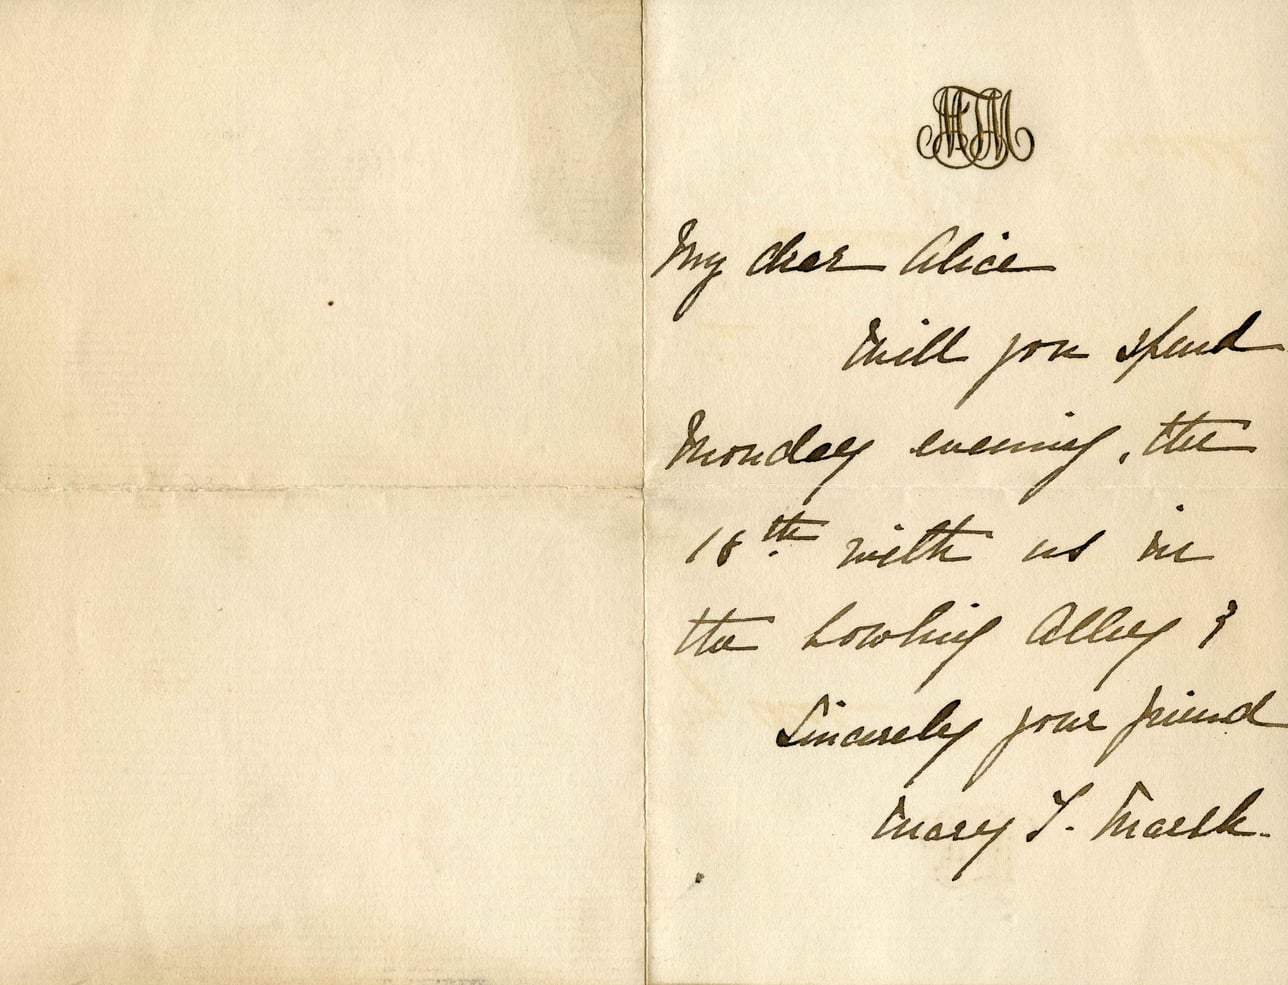 MTM
My dear Alice
Will you spend
Monday evening, the
18th. with us in
the bowling Alley?
Sincerely your friend
Mary T. Marsh.